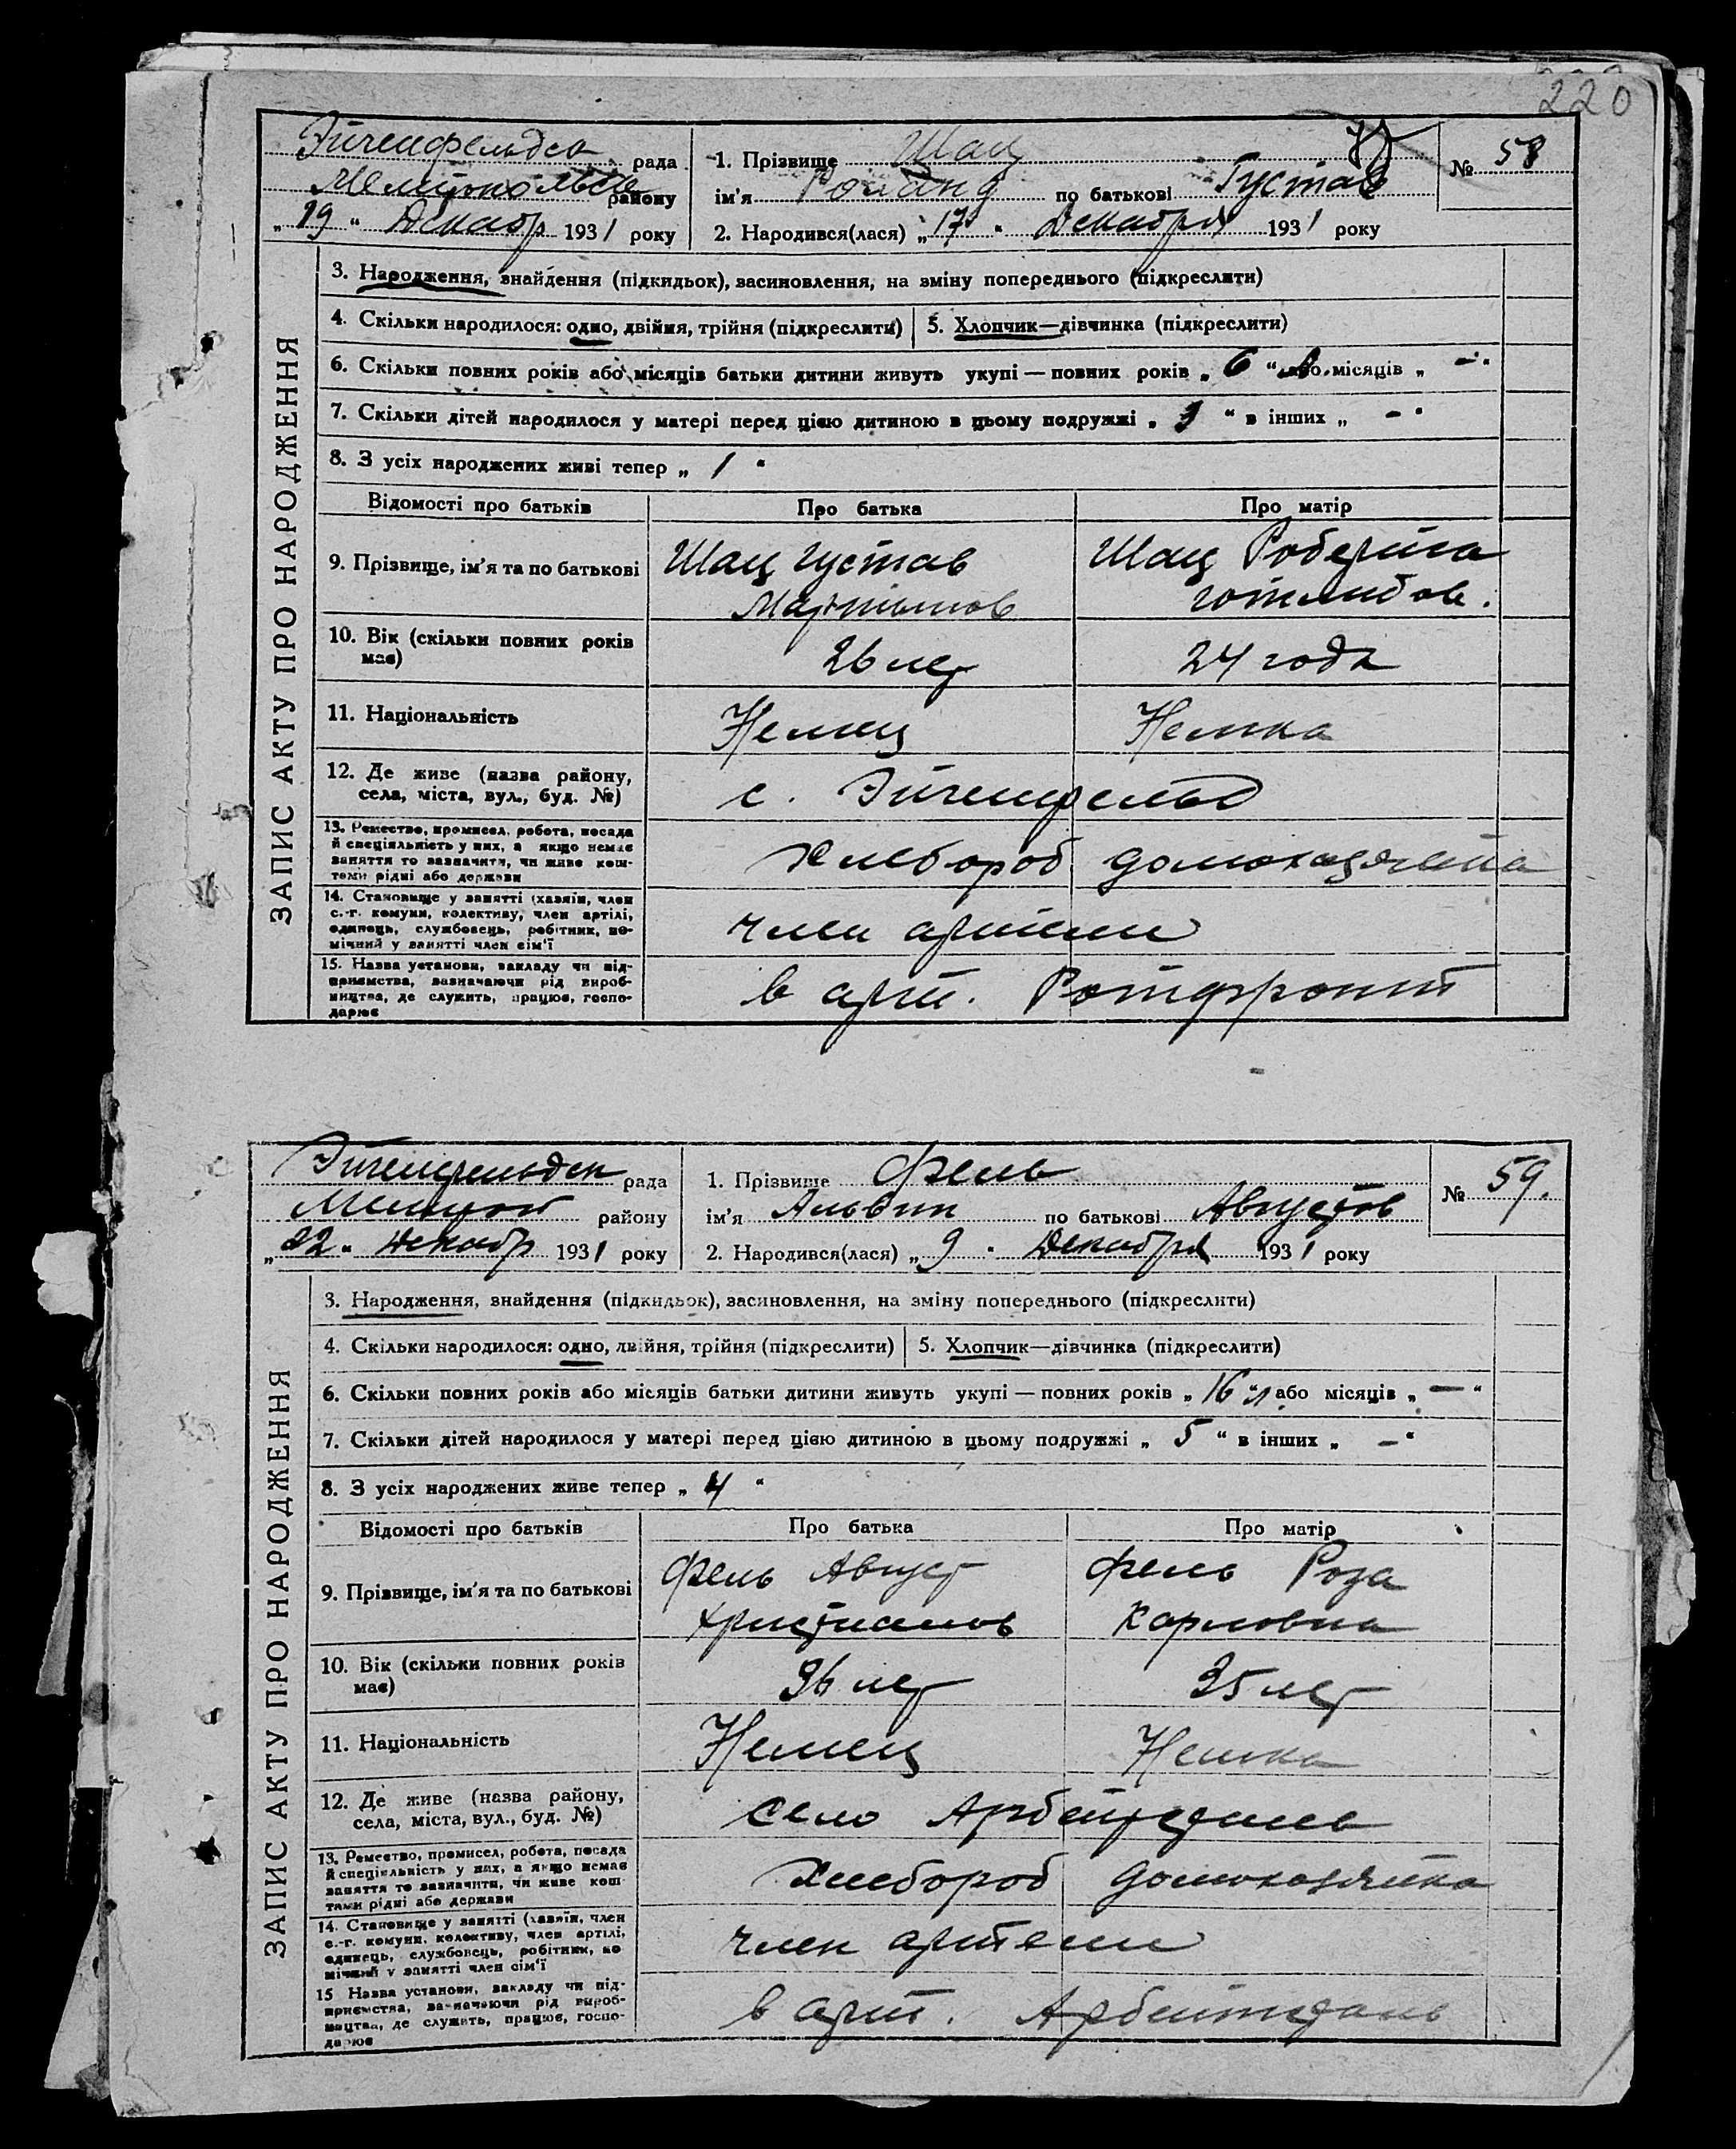 220
Эйгенфельдск рада
Мелитопольск району
„ 19 “ Декабр 1931 року
1. Прізвище Шац
ім'я Роланд по батькові Густав
2. Народився(лася) „ 17 “ Декабря 1931 року
№ 58
ЗАПИС АКТУ ПРО НАРОДЖЕННЯ
3. Народження, знайдення (підкидьок), засиновлення, на зміну попереднього (підкреслити)
4. Скільки народилося: одно, двійня, трійня (підкреслити) 5. Хлопчик—дівчинка (підкреслити)
6. Скільки повних років або місяців батьки дитини живуть укупі — повних років „ 6 “ або місяців „ — “
7. Скільки дітей народилося у матері перед цією дитиною в цьому подружжі „ 1 “ в інших „ — “
8. З усіх народжених живі тепер „ 1 “
Відомості про батьків Про батька Про матір
9. Прізвище, ім'я та по батькові
Шац Густав
Мартынов
Шац Роберта
Готлибов.
10. Вік (скільки повних років
має)
26 лет
24 года
11. Національність
Немец
Немка
12. Де живе (назва району,
села, міста, вул., буд. №)
с. Эйгенфельд
13. Ремество, промисел, робота, посада
й спеціяльність у них, а якщо немає
заняття то зазначити, чи живе кош-
тами рідні або держави
хлебороб домохозяйка
14. Становище у занятті (хазяїн, член
с.-г. комуни, колективу, член артілі,
одинець, службовець, робітник, по-
мічний у занятті член сім'ї
член артели
15. Назва установи, закладу чи під-
приємства, зазначаючи рід вироб-
ництва, де служить, працює, госпо-
дарює
в арт. Ротфронт
Эйгенфельдск рада
Мелитоп району
„ 22 “ Декабр 1931 року
1. Прізвище Фель
ім'я Альвин по батькові Августов
2. Народився(лася) „ 9 “ Декабря 1931 року
№ 59.
ЗАПИС АКТУ ПРО НАРОДЖЕННЯ
3. Народження, знайдення (підкидьок), засиновлення, на зміну попереднього (підкреслити)
4. Скільки народилося: одно, двійня, трійня (підкреслити) 5. Хлопчик—дівчинка (підкреслити)
6. Скільки повних років або місяців батьки дитини живуть укупі — повних років „ 16 “ л або місяців „ — “
7. Скільки дітей народилося у матері перед цією дитиною в цьому подружжі „ 5 “ в інших „ — “
8. З усіх народжених живе тепер „ 4 “
Відомості про батьків Про батька Про матір
9. Прізвище, ім'я та по батькові
Фель Август
Христианов
Фель Роза
Карловна
10. Вік (скільки повних років
має)
36 лет
35 лет
11. Національність
Немец
Немка
12. Де живе (назва району,
села, міста, вул., буд. №)
село
13. Ремество, промисел, робота, посада
й спеціяльність у них, а якщо немає
заняття то зазначити, чи живе кош-
тами рідні або держави
хлебороб домохозяйка
14. Становище у занятті (хазяїн, член
с.-г. комуни, колективу, член артілі,
одинець, службовець, робітник, по-
мічний у занятті член сім'ї
член артели
15 Назва установи, закладу чи під-
приємства, зазначаючи рід вироб-
ництва, де служить, працює, госпо-
дарює
в арт.